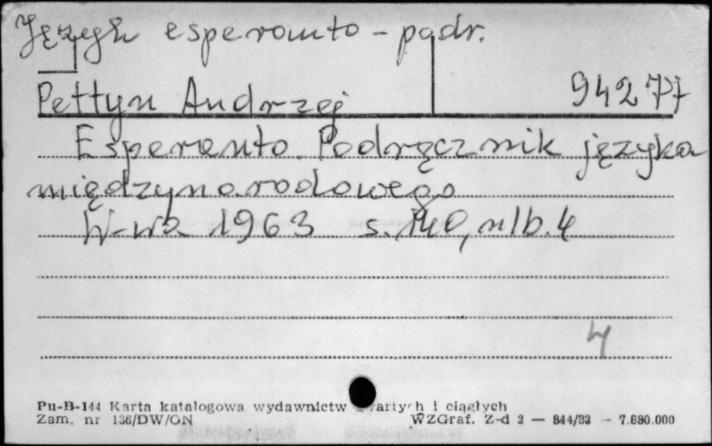 Język esperanto - podr.
Pettyn Andrzej 94277
Esperanto. Podręcznik języka
międzynarodowego
W-wa 1963 s. 140, nlb. 4
4
Pu-B-144 Karta katalogowa wydawnictw zwartych i ciągłych
Zam. nr 136/DW/ON WZGraf. Z-d 2 — 844/83 — 7.680.000